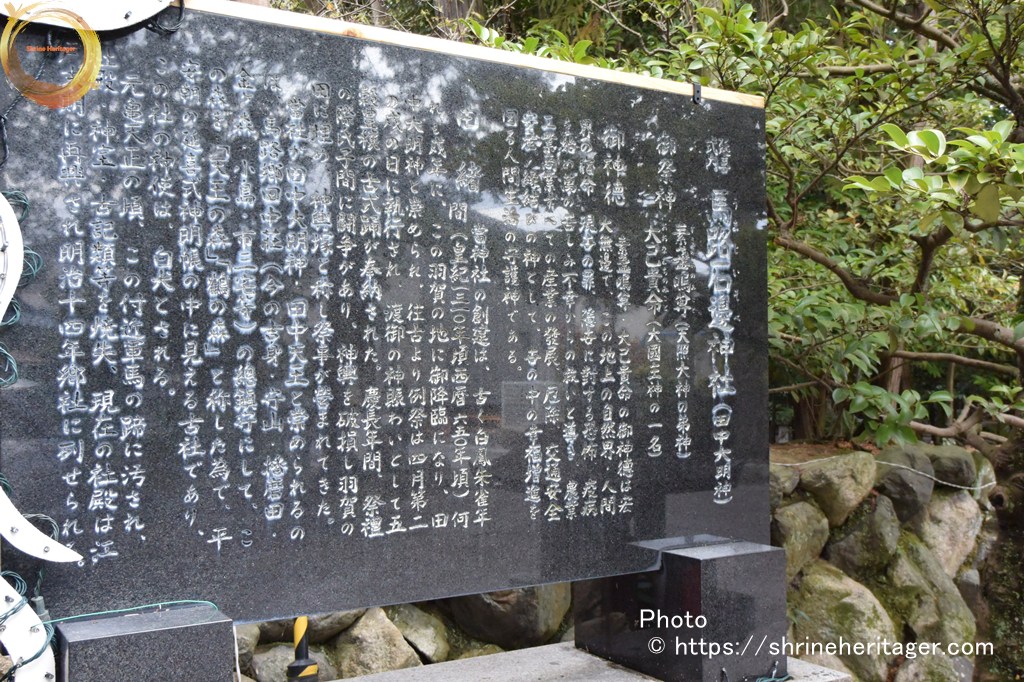 馬路石邊神社(田中大明神)
御祭神
素盞嗚尊(天照大神の弟神)
大己貴命(大國主神の一名)
御神徳
素盞嗚尊、大己貴命の御神徳は宏
大無辺で、この地上の自然界、人間
界の宿命、根本の罪、
疫病
農業
ての産業の發展、厄除、交通安全
の神として、世の中の幸福増進を
図る人間生活の守護神である。
由緒
當神社の創建は、古く白鳳朱雀年
間(皇紀一三一〇年頃西暦六五〇年頃)何
戊年に、この羽賀の地に御降臨になり、田
中大明神と崇められ、往古より例祭は四月第二
の日に執行され、渡御の神賑わいとして五
の古式踊が奉納された。慶長年間、祭禮
の際氏子間に闘争があり、神輿を破損し羽賀の
神輿塚と称し祭事が営まれてきた。
當社が田中大明神・田中天王と崇められるの
は、馬路郷田中荘(今の吉身・守山・播磨田・
金森・小島・市三宅等)の總鎮守にして、こ
の森を「天王の森」「鵜の森」と称した為で、平
安朝の延喜式神明帳の中に見える古社であり、
この社の神使は、白犬とされる。
元亀天正の頃、この付近軍馬の跡に汚され、
神宝・古記類等を焼失、現在の社殿は、江
再興され明治十四年郷社に列せられ。
Shrine Heritager
Photo
© https://shrineheritager.com